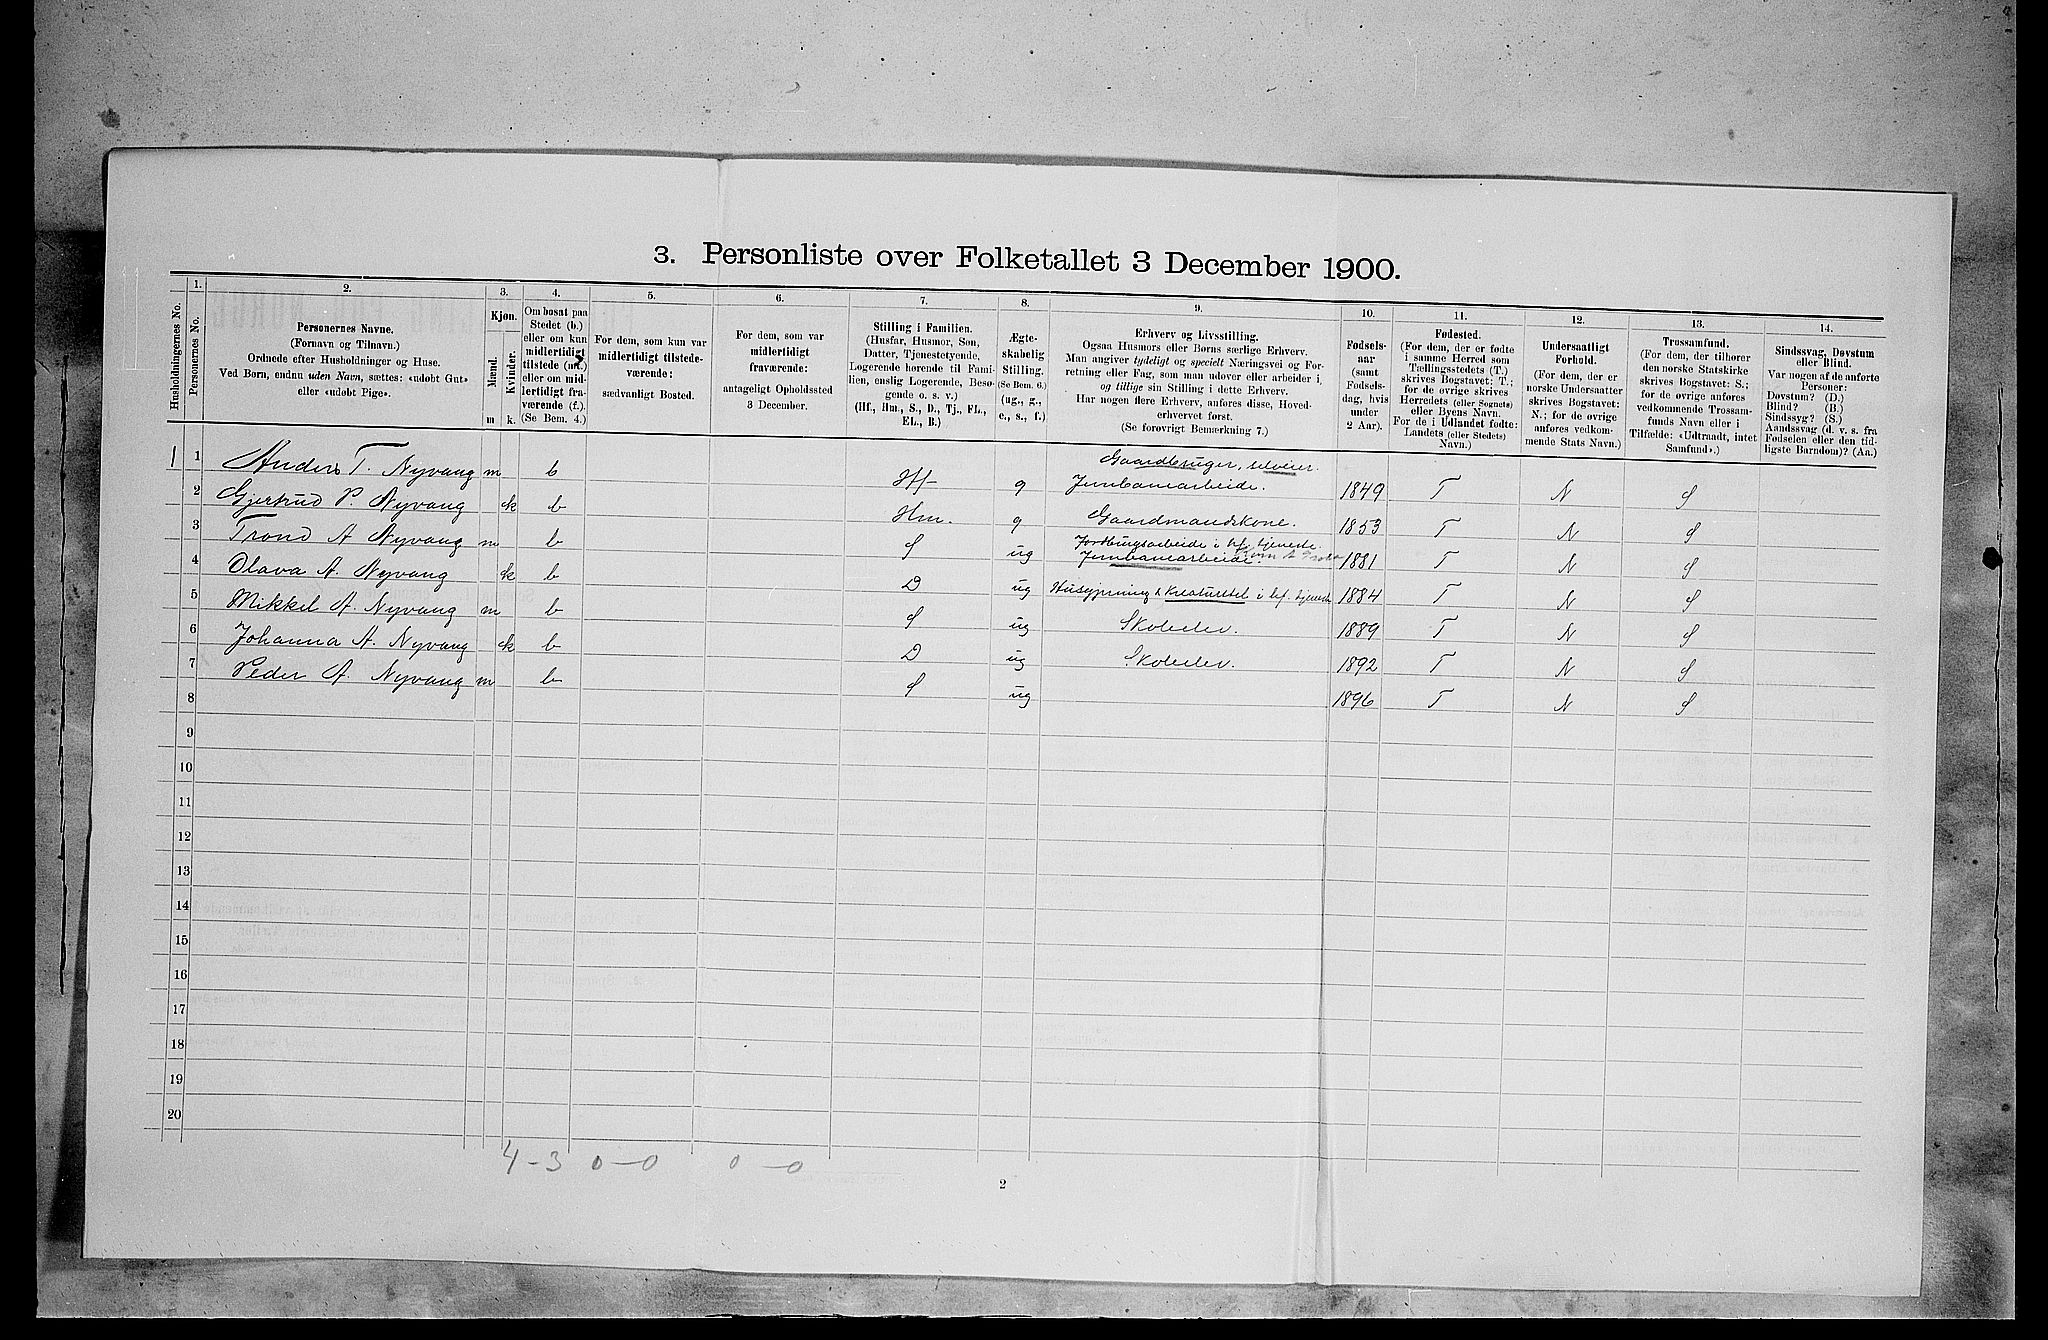 3. Personliste over Folketallet 3 December 1900.
Husholdningernes No.
1.
Personernes No.
2.
Personernes Navne.
(Fornavn og Tilnavn.)
Ordnede efter Husholdninger og Huse.
Ved Børn, endnu uden Navn, sættes: «udøbt Gut»
eller «udøbt Pige».
3.
Kjøn.
Mænd.
Kvinder.
m k.
4.
Om bosat paa
Stedet (b.)
eller om kun
midlertidigt
tilstede (mt.)
eller om mid-
lertidigt fra-
værende (f.).
(Se Bem. 4.)
5.
For dem, som kun var
midlertidigt tilstede-
værende:
sædvanligt Bosted.
6.
For dem, som var
midlertidigt
fraværende:
antageligt Opholdssted
3 December.
7.
Stilling i Familien.
(Husfar, Husmor, Søn,
Datter, Tjenestetyende,
Logerende hørende til Fami-
lien, enslig Logerende, Besø-
gende o. s. v.)
(Hf., Hm., S., D., Tj., FL.,
EL., B.)
8.
Ægte-
skabelig
Stilling.
(Se Bem. 6.)
(ug., g.,
e., s., f.)
9.
Erhverv og Livsstilling.
Ogsaa Husmors eller Børns særlige Erhverv.
Man angiver tydeligt og specielt Næringsvei og For-
retning eller Fag, som man udøver eller arbeider i,
og tillige sin Stilling i dette Erhverv.
Har nogen flere Erhverv, anføres disse, Hoved-
erhvervet først.
(Se forøvrigt Bemærkning 7.)
10.
Fødsels-
aar
(samt
Fødsels-
dag, hvis
under
2 Aar).
11.
Fødested.
(For dem, der er fødte
i samme Herred som
Tællingsstedets (T.)
skrives Bogstavet: T.;
for de øvrige skrives
Herredets (eller Sognets)
eller Byens Navn.
For de i Udlandet fødte:
Landets (eller Stedets)
Navn.)
12.
Undersaatligt
Forhold.
(For dem, der er
norske Undersaatter
skrives Bogstavet:
N.; for de øvrige
anføres vedkom-
mende Stats Navn.)
13.
Trossamfund.
(For dem, der tilhører
den norske Statskirke
skrives Bogstavet: S.;
for de øvrige anføres
vedkommende Trossam-
funds Navn eller i
Tilfælde: «Udtraadt, intet
Samfund».)
14.
Sindssvag, Døvstum
eller Blind.
Var nogen af de anførte
Personer:
Døvstum? (D.)
Blind? (B.)
Sindssyg? (S.)
Aandssvag (d. v. s. fra
Fødselen eller den tid-
ligste Barndom)? (Aa.)
1 1 Anders T. Nyvang m b Hf g Gaardbruger, selveier.
Jernbanearbeide. 1849 T N S
2 Gjertrud P. Nyvang k b Hm. g Gaardmandskone. 1853 T N S
3 Trond A Nyvang m b S ug Jordbrugsarbeide i hf. tjeneste.
Jernbanearbeide. 1881 T N S
4 Olava A. Nyvang k b D ug Husgjerning & Kreaturstel i hf. tjeneste 1884 T N S
5 Mikkel A. Nyvang m b S ug Skoleelev. 1889 T N S
6 Johanna A. Nyvang k b D ug Skoleelev. 1892 T N S
7 Peder A. Nyvang m b S ug 1896 T N S
8
9
10
11
12
13
14
15
16
17
18
19
20
4-3 0-0 0-0
2